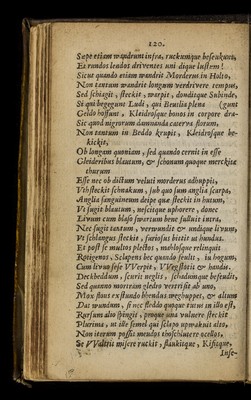 120.
Sæpe etiam wandrunt infra, ruckumque beseukunt,
Et rundos leudos driventes uni dique lustrem!
Sicut quando etiam wandrit Morderus in Holto,
Non tantum wandrit longum verdrivere tempus,
Sed schiagit, steckit, warpit, donditque Subinde,
Si qui begegunt Ludi, qui Beutlis plena (gunt
Geldo hoffunt, Kleidrosque bonos in corpore dra-
Sic quod nigrorum damnanda caterva florum,
Non tantum in Beddo krupit, Kleidrosque be-
kickit,
Ob longam quoniam, sed quando cernit in esse
Gleideribus blautum, & schonum quoque merckitæ
thurum
Esse nec ob dictum veluti morderus adhuppis,
Vthsteckit schnakum, sub quo sum anglia scarpa,
Anglia sanguineum deipe quæ steckit in hutum,
Vt sugit blautum, nescitque uphorere, donec
Livum cum blaso suvertum bene fulluit intra,
Nec sugit tantum, verwundit & undique livum,
Vt schlangus steckit, furiosus bistit ut hundus.
Et post se multos plestros, mablosque relinquit
Rotigenos, Sclapens bec quando feult, iu bogum,
Cum livum sese VVerpit, VVegflotis & handis.
Deckbeddum, scurit neglis, schadumque besudit,
Sed quanno mortrim gledro vestrisit ab uno,
Mox flons exstundo bhendus weghuppet, & alium
Dat wundum, si nec steddo quoque tutus in illo est,
Rorsum alto springit, proque una vulnere steckit
Plurima, ut ille semel qui sclapo upwaknit alto,
Non iterum possit meudos thoschluttere ocellos,
Se VValtrit misere ruckit, slaukitque, Kistique,
Inse-